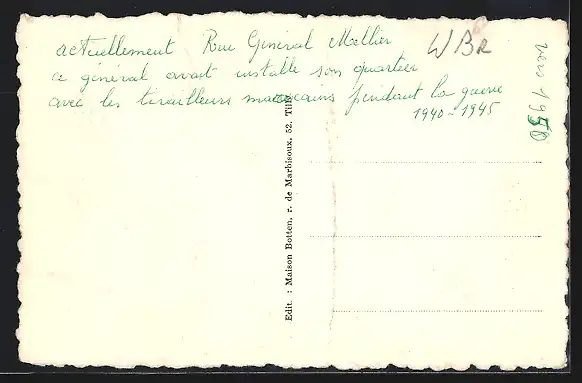 actuellement Rue Général Mellier
ce général avait installé son quartier
avec les tirailleurs marocains pendant la guerre
1940-1945
WBR
vers 1950
Edit. : Maison Botten, r. de Marbisoux, 52, Tilly